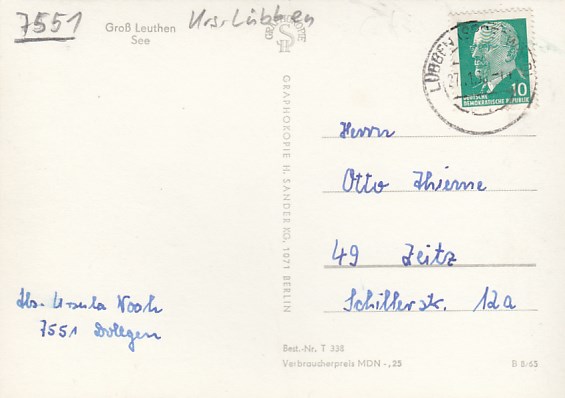 7551
Krs. Lübben
Groß Leuthen
See
GRAPHOKOPIE
HS
LÜBBEN
10
DEUTSCHE
DEMOKRATISCHE REPUBLIK
GRAPHOKOPIE H. SANDER KG, 1071 BERLIN
Herrn
Otto Thieme
49 Zeitz
Schillerstr. 12a
Ursula
7551 Dollgen
Best.-Nr. T 338
Verbraucherpreis MDN -,25
B 8/65